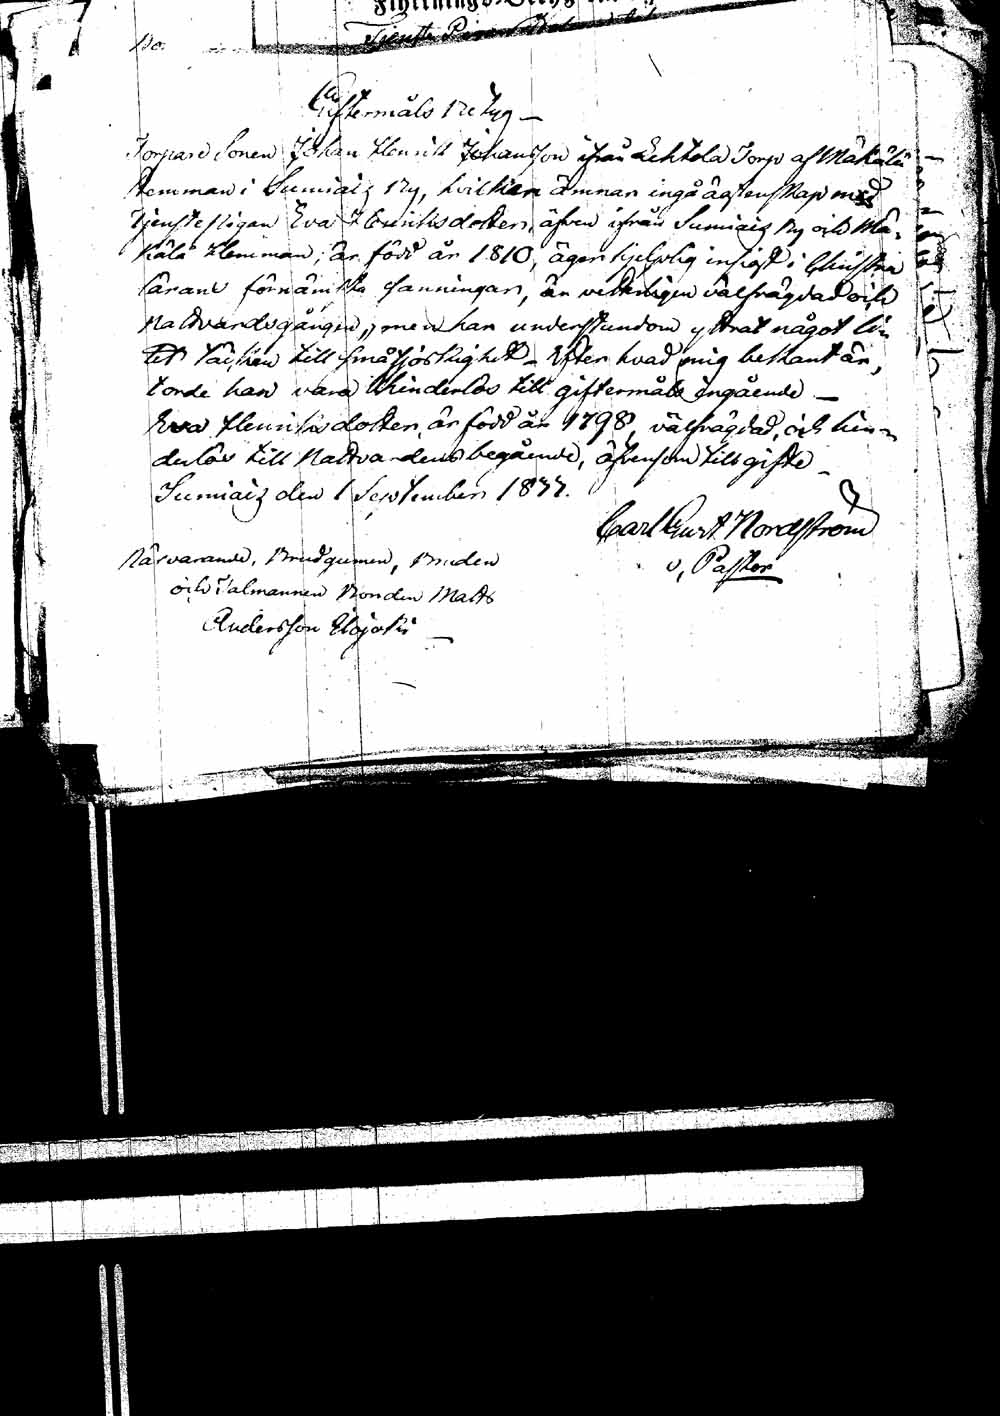 Flyttnings-
Tienste
No.
Giftermåls Betyg —
Torpare Sonen Johan Henrik Johansson ifrån Lehtola Torp af Mäkälä
Hemman i Sumiais By, hvilken ämnar ingå ägtenskap med
tjenste Pigan Eva Henriksdotter, äfven ifrån Sumiais By och Mä-
kälä Hemman, är född år 1810, äger hjelplig insigt i Christna
lärans förnämsta sanningar, är verkeligen välfrägdad och
Nattvardsgången, men han understundom yttrat något li-
tet täcken till småsjöskighet — Efter hvad mig bekant är,
torde han vara hinderlös till giftermåls ingående —
Eva Henriksdotter, är född år 1798, välfrägdad, och hin-
derlös till Nattvardens begående, äfvensom till gifte —
Sumiais den 1 September 1837.
Carl Gust. Nordström
v. Pastor
Närvarande, Brudgumen, Bruden
och Talmannen Bonden Matts
Andersson Elojoki —